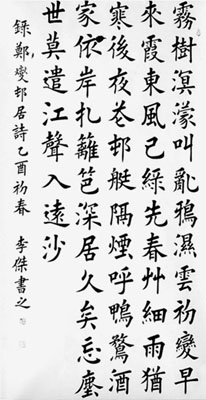 霧樹溟濛叫亂鴉濕雲初變早
來霞東風已綠先春艸細雨猶
寒後夜花邨艇隔煙呼鴨鶩酒
家依岸扎籬笆深居久矣忘塵
世莫遣江聲入遠沙
錄鄭燮邨居詩乙酉初春 李傑書之